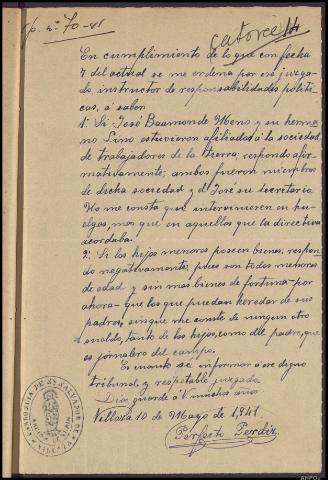 Exp. nº 70-41
catorce 14
En cumplimiento de lo que con fecha
7 del actual se me ordena por ese juzga-
do, instructor de responsabilidades politi-
cas, á saber
1ª Si José Baamonde Meno y su herma-
no Lino estuvieron afiliados á la sociedad
de trabajadores de la tierra, respondo afir-
mativamente; ambos fueron miembros
de dicha sociedad y el José su secretario.
No me consta que intervinieren en huel-
gas, mas que en aquellos que la directiva
acordaba.
2ª Si los hijos menores poseen bienes, respon-
do negativamente, pues son todos menores
de edad y sin mas bienes de fortuna-por
ahora-que los que puedan heredar de sus
padres, sin que me conste de ningun otro
sueldo, tanto de los hijos, como del padre, que
es jornalero del campo.
Es cuanto sé informar á ese digno
tribunal, y respetable juzgado.
Dios guarde á V. muchos años.
Villaza 10 de Mayo de 1,941
Perfecto Perdiz
PARROQUIA DE S. SALVADOR DE